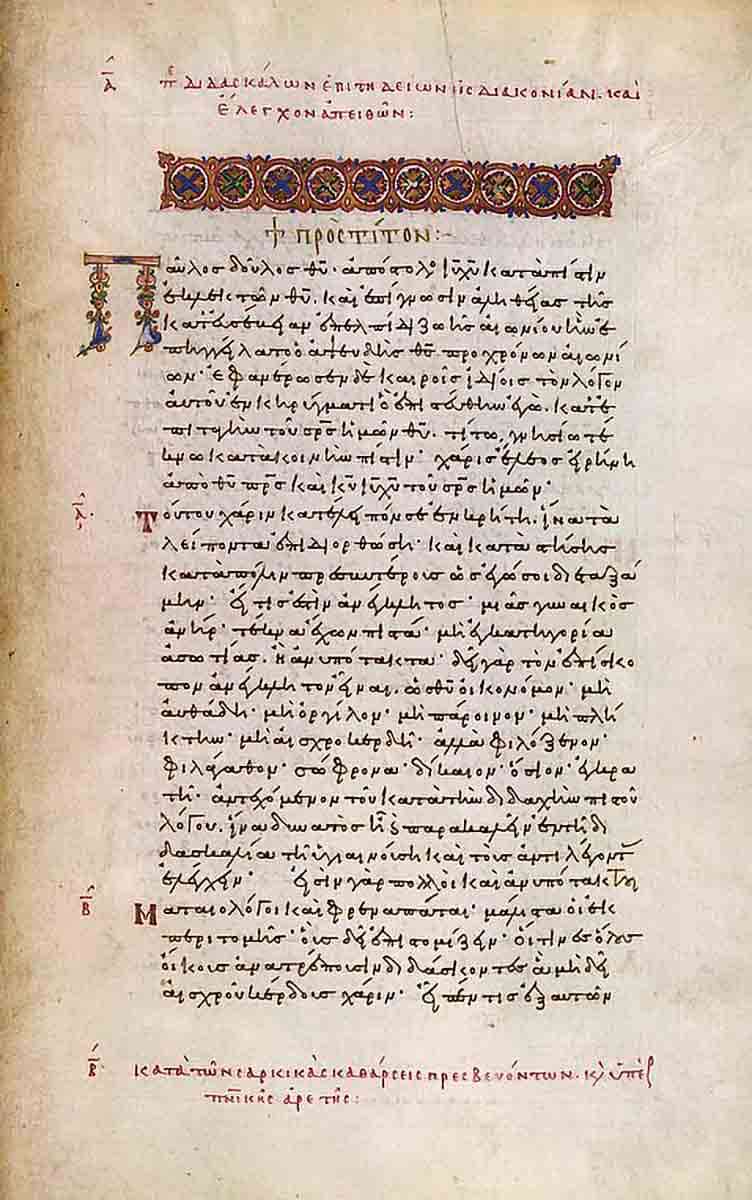 Α π διδασκάλων ἐπιτηδείων εἰς διακονίαν. καὶ
ἔλεγχον ἀπειθῶν:
✝ ΠΡΟΣ ΤΙΤΟΝ:-
Παῦλος δοῦλος θυ· ἀπόστολο ιυ χυ κατὰ πίστιν
ἐκλεκτῶν θυ. καὶ ἐπίγνωσιν ἀληθείας τῆς
κατ' εὐσέβειαν ἐπ' ἐλπίδι ζωῆς αἰωνίου ἣν ἐ
πηγγείλατο ὁ ἀψευδὴς θς πρὸ χρόνων αἰωνί
ων· ἐφανέρωσεν δὲ καιροῖς ἰδίοις τὸν λόγον
αὐτοῦ ἐν κηρύγματι ὃ ἐπιστεύθην ἐγὼ. κατ' ἐ
πιταγὴν τοῦ σρς ἡμῶν θυ. τίτω, γνησίω τέ
κνω κατὰ κοινὴν πίστιν· χάρις ἔλεος εἰρήνη
ἀπὸ θυ πρς καὶ κυ ιυ χυ τοῦ σρς ἡμῶν·
Α· Τούτου χάριν κατέλειπόν σε ἐν κρήτη. ἵνα τὰ
λείποντα ἐπιδιορθώση· καὶ καταστήσης
κατὰ πόλιν πρεσβυτέροις ὡς ἐγώ σοι διεταξά
μην· εἴ τις ἐστὶν ἀνέγκλητος· μιᾶς γυναικὸς
ἀνήρ· τέκνα ἔχων πιστά· μὴ ἐν κατηγορία
ἀσωτίας. ἢ ἀνυπότακτα· δεῖ γὰρ τὸν ἐπίσκο
πον ἀνέγκλητον εἶναι. ὡς θυ οἰκονόμον· μὴ
αὐθάδη· μὴ ὀργίλον· μὴ πάροινον· μὴ πλή
κτην· μὴ αἰσχροκερδῆ· ἀλλὰ φιλόξενον·
φιλάγαθον· σώφρονα· δίκαιον· ὅσιον· ἐγκρα
τῆ· ἀντεχόμενον τοῦ κατὰ τὴν διδαχὴν πιστοῦ
λόγου. ἵνα δυνατὸς ἦ καὶ παρακαλεῖν ἐν τῆ δι
δασκαλία τῆ ὑγιαινούση καὶ τοὺς ἀντιλέγοντ
ἐλέγχειν· εἰσὶν γὰρ πολλοὶ καὶ ἀνυπότακτοι
Β Ματαιολόγοι καὶ φρεναπάται· μάλιστα οἱ ἐκ
περιτομῆς· οὓς δεῖ ἐπιστομίζειν· οἵτινες ὅλους
οἴκους ἀνατρέπουσιν διδάσκοντες ἃ μὴ δεῖ
αἰσχροῦ κέρδους χάριν· εἶπέν τις ἐξ αὐτῶν
Β· κατὰ τῶν σαρκικὰς καθάρσεις πρεσβευόντων. κὶ ὑπὲρ
πνικῆς ἀρετῆς: